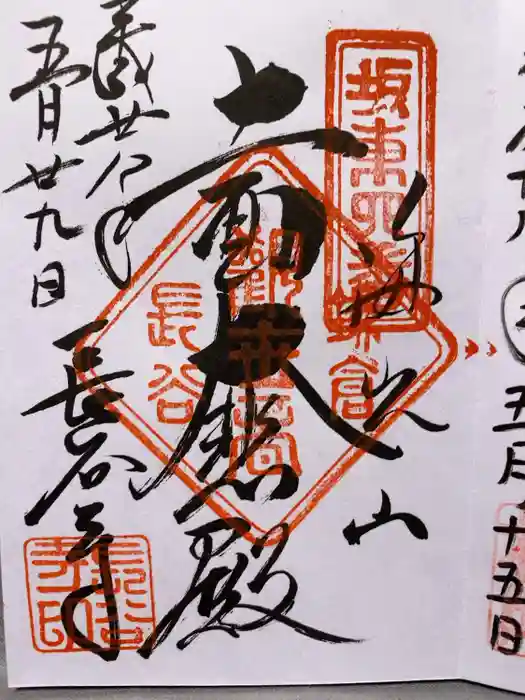 五月十五日
坂東四番
海光山
鎌倉
十一面大悲殿
長谷
平成廿八年
五月廿九日
長谷寺
長谷寺印